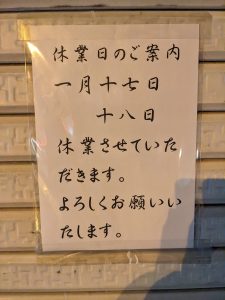 休業日のご案内
一月十七日
十八日
休業させていた
だきます。
よろしくお願いい
たします。